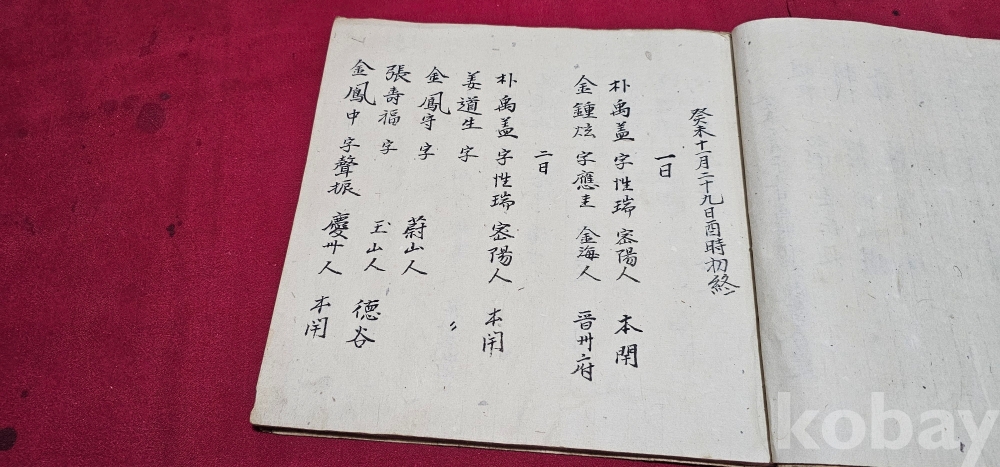 癸未十一月二十九日酉時初終
一日
朴禹盖 字性瑞 密陽人 本閈
金鍾炫 字應圭 金海人 晋卅府
二日
朴禹盖 字性瑞 密陽人 本閈
姜道生 字
金鳳守 字 蔚山人 〃
張壽福 字 玉山人 德谷
金鳳中 字聲振 慶卅人 本閈
kobay